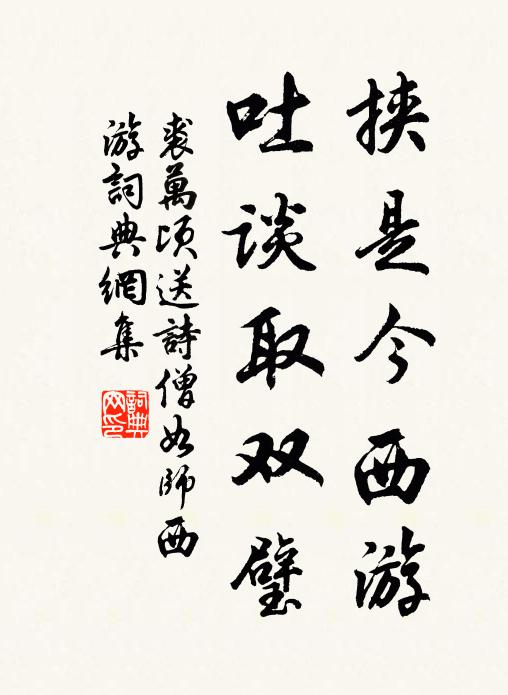 挟是今西游
吐谈取双璧
裘萬顷送詩僧如師西
游詞典網集
詞典
网印